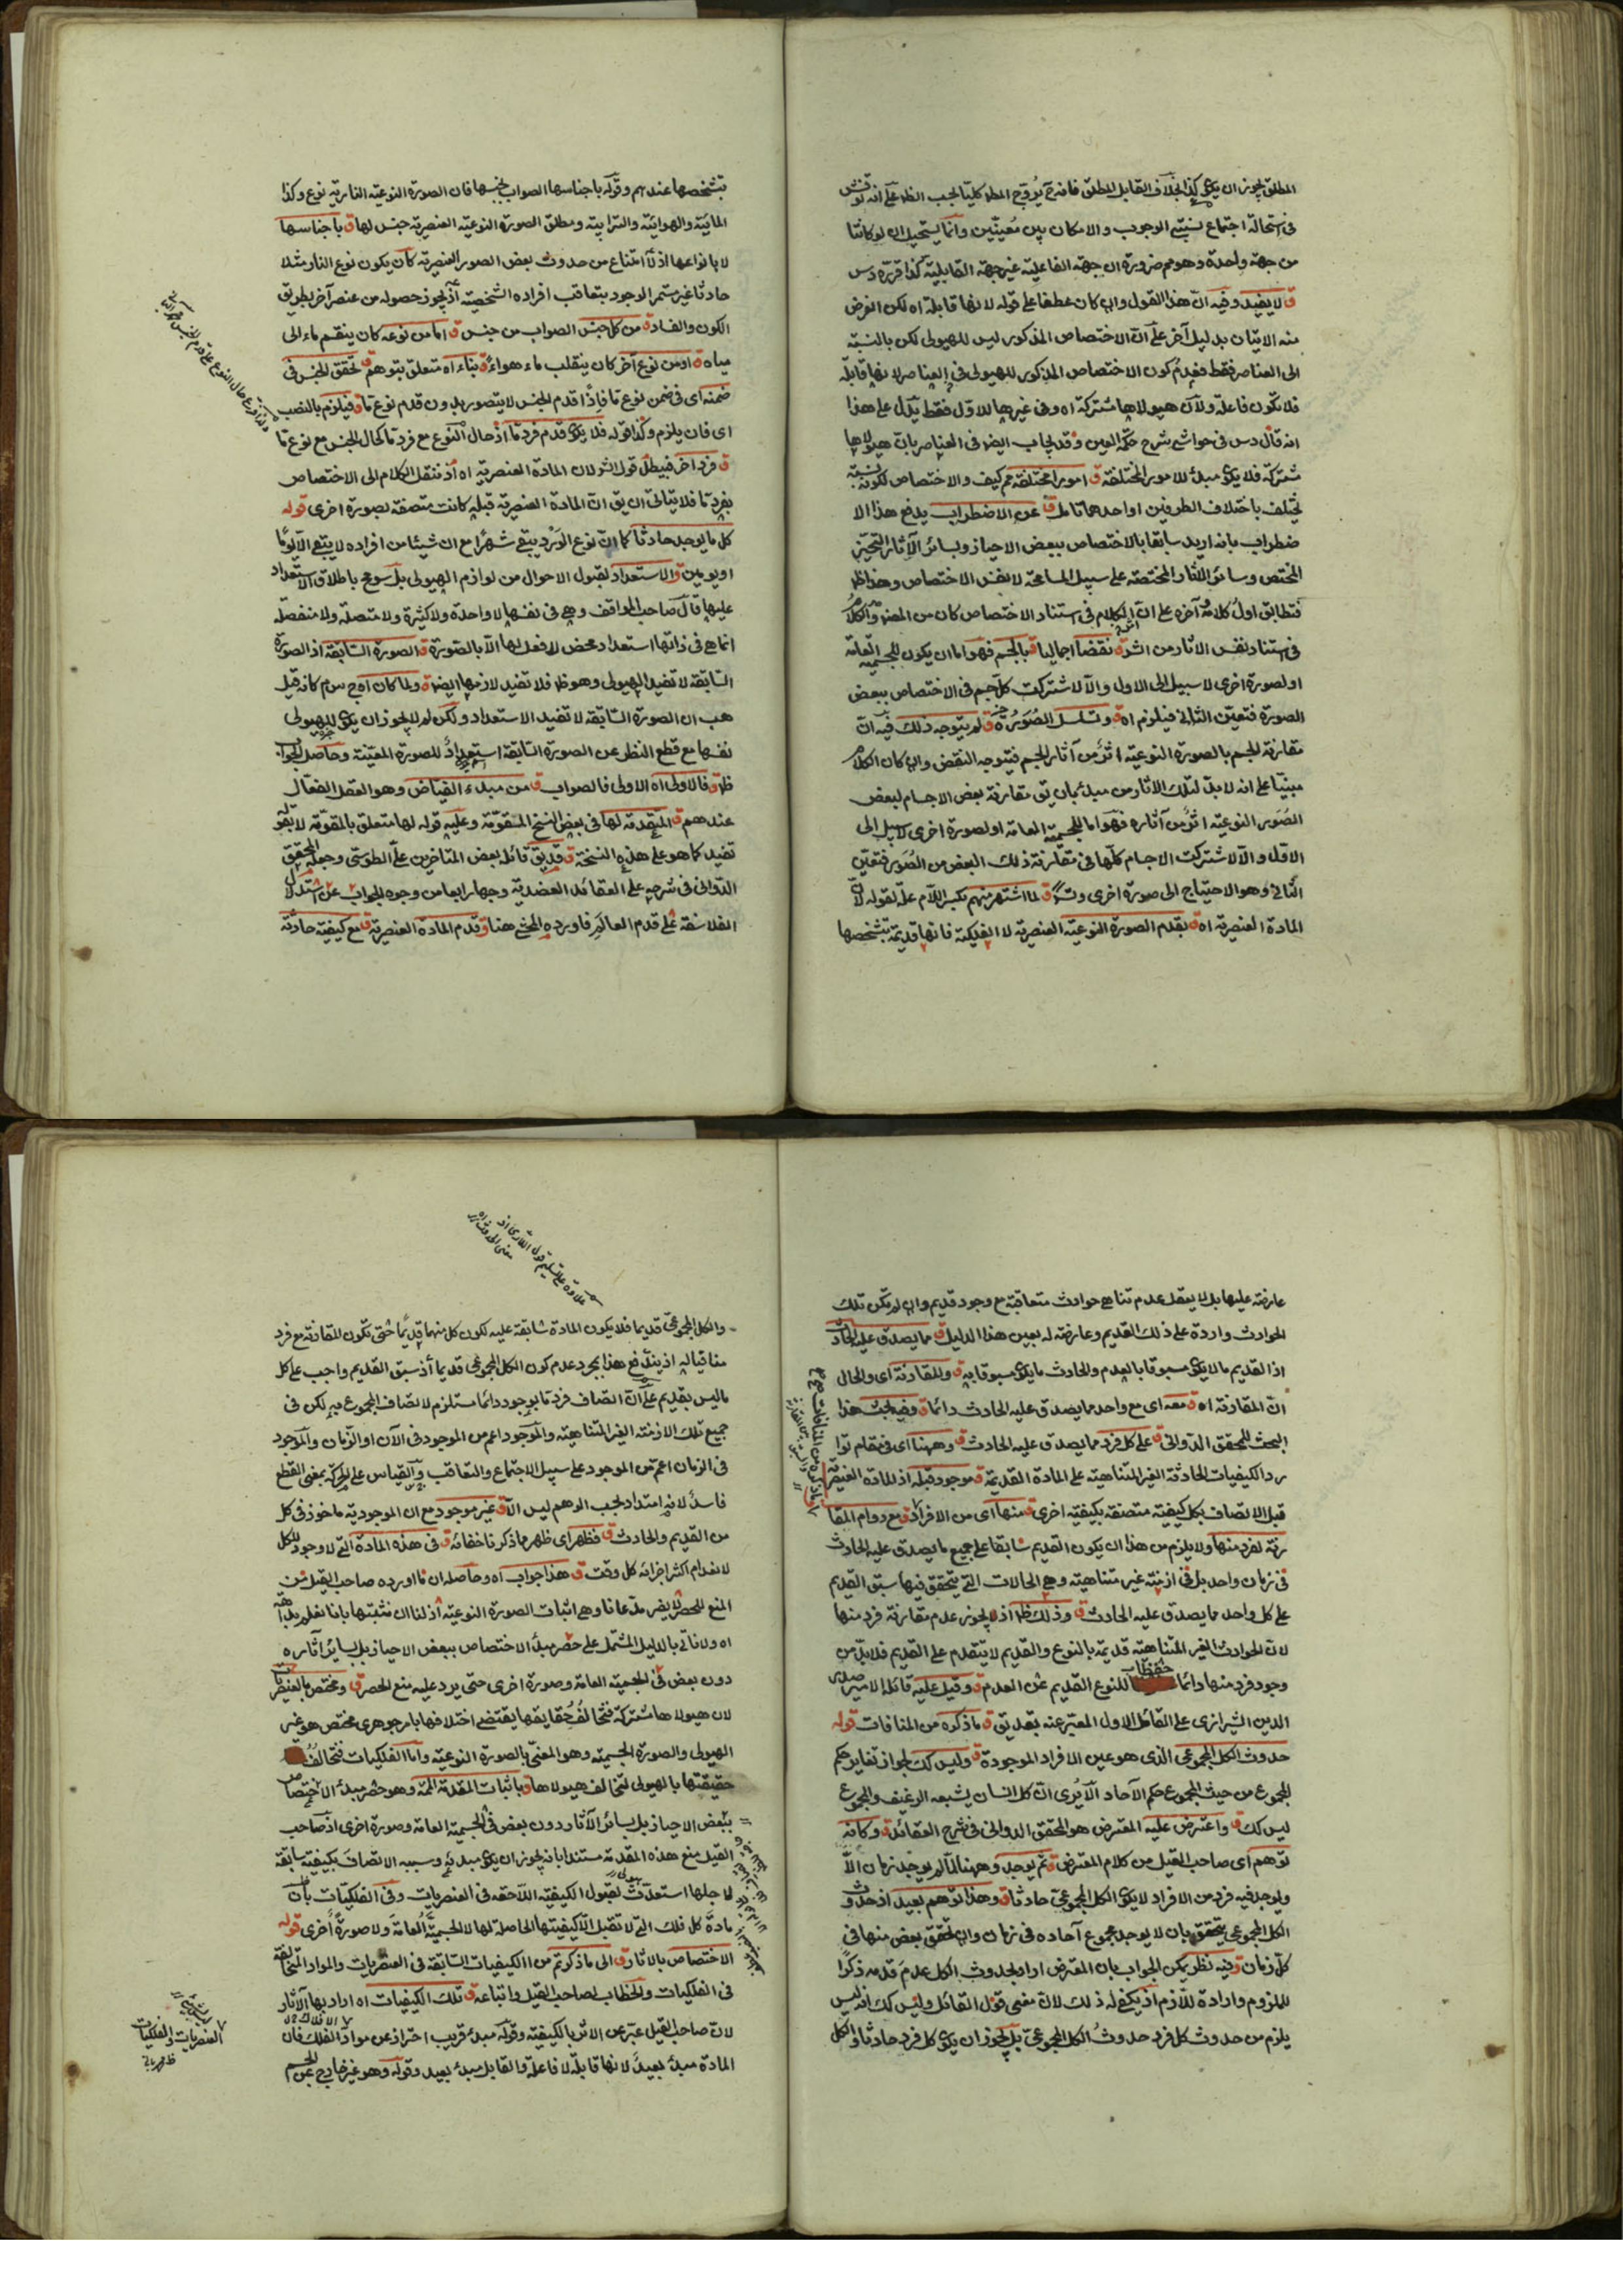 المطلق يجوز ان يكون كذا بخلاف القابل المطلق فانه ح يروج المط كليا بحسب الظ على انه نوقش
في استحالة اجتماع نسبتي الوجوب والامكان بين معينين وانما يستحيل ان لو كانتا
من جهة واحدة وهو مم ضرورة ان جهة الفاعلية غير جهة القابلية كذا قرره دس
ق لا يفيد وفيه ان هذا القول وان كان عطفا على قوله لانها قابلة اه لكن الغرض
منه الاتيان بدليل آخر على ان الاختصاص المذكور ليس للهيولى لكن بالنسبة
الى العناصر فقط فعدم كون الاختصاص المذكور للهيولى في العناصر لانها قابلة
فلا تكون فاعلة ولان هيولاها مشتركة اه وفي غيرها للاول فقط يدل على هذا
انه قال دس في حواشي شرح حكمة العين وقد يجاب ايضا في العناصر بان هيولاها
مشتركة فلا يكون مبدأ للامور المختلفة ق امورا مختلفة مم كيف والاختصاص لكونه نسبة
يختلف باختلاف الطرفين او احدهما تأمل ق عن الاضطراب يدفع هذا الا
ضطراب بانه اريد سابقا بالاختصاص ببعض الاحياز وبسائر الآثار التحيز
المختص وسائر الآثار المختصة على سبيل المسامحة لا نفس الاختصاص وهذا ظ
فتطابق اول كلامه وآخره على ان الكلام في استناد الاختصاص كان من المضر والكلام
في استناد نفس الاثار من الشرح ق نقضا اجماليا ق بالجسم فهو اما ان يكون للجسمية العامة
او لصورة اخرى لا سبيل الى الاول والا لاشتركت كل جسم في الاختصاص ببعض
الصورة فتعين الثاني فيلزم اه ق وتسلسل الصور ق لم يتوجه ذلك فيه ان
مقارنة الجسم بالصورة النوعية اثر من آثار الجسم فيتوجه النقض وان كان الكلام
مبنيا على انه لا بد لتلك الاثار من مبدأ بان يق مقارنة بعض الاجسام لبعض
الصور النوعية اثر من آثاره فهو اما للجسمية العامة او لصورة اخرى لا سبيل الى
الاول والا لاشتركت الاجسام كلها في مقارنة ذلك البعض من الصور فتعين
الثاني وهو الاحتياج الى صورة اخرى وتس ق لما اشتهر منهم بكسر اللام علة لقوله لان
المادة العنصرية اه ق بقدم الصورة النوعية العنصرية لا الفلكية فانها قديمة بتشخصها
بتشخصها عندهم وقوله باجناسها الصواب بجنسها فان الصورة النوعية النارية نوع وكذا
المائية والهوائية والترابية ومطلق الصورة النوعية العنصرية جنس لها ق باجناسها
لا بانواعها اذ لا امتناع من حدوث بعض الصور العنصرية كان يكون نوع النار مثلا
حادثا غير مستمر الوجود بتعاقب افراده الشخصية اذ يجوز حصوله من عنصر آخر بطريق
الكون والفساد ق من كل جنس الصواب من جنس ق اما من نوعه كان ينقسم ماء الى
مياه ق او من نوع آخر كان ينقلب ماء هواء ق بناء اه متعلق بتوهم ق تحقق الجنس في
ضمنه اى في ضمن نوع ما فاذا قدم الجنس لا يتصور بدون قدم نوع ما ق فيلزم بالنصب
اى فان يلزم وكذا قوله فلا يكون قدم فرد ما اذ حال النوع مع فرد ما كحال الجنس مع نوع ما
ق فرد اخر فيبطل قول الشر لان المادة العنصرية اه اذ ننقل الكلام الى الاختصاص
بفرد ما فلا يتأتى ان يق ان المادة العنصرية قبله كانت متصفة بصورة اخرى قوله
كل ما يوجد حادثا كما ان نوع الورد يبقى شهرا مع ان شيئا من افراده لا يبقى الا يوما
او يومين ق والاستعداد لقبول الاحوال من لوازم الهيولى بل سومح باطلاق الاستعداد
عليها قال صاحب المواقف وهي في نفسها لا واحدة ولا كثيرة ولا متصلة ولا منفصلة
انما هي في ذاتها استعداد محض لا فعل لها الا بالصورة ق الصورة السابقة اذ الصورة
السابقة لا تفيد الهيولى وهو ظ فلا تفيد لازمها ايضا ق ولما كان اه ج س م كانه قيل
هب ان الصورة السابقة لا تفيد الاستعداد ولكن لم لا يجوز ان يكون للهيولى
نفسها مع قطع النظر عن الصورة السابقة استعداد للصورة المعينة وحاصل الجواب
ظ ق فالاولى اه الاولى فالصواب ق من مبدء الفياض وهو العقل الفعال
عندهم ق المتقدمة لها في بعض النسخ المتقومة وعليه قوله لها متعلق بالمقومة لا بقوله
تفيد كما هو على هذه النسخة ق قد يق قائله بعض المتأخرين على الطوسي وجعله المحقق
الدواني في شرحه على العقائد العضدية وجها رابعا من وجوه الجواب عن استدلال
الفلاسفة على قدم العالم فاورده المحشي هنا ق وقدم المادة العنصرية ق مع كيفية حادثة
عارضة عليها بل لا يعقل عدم تناهي حوادث متعاقبة مع وجود قديم وان لم تكن تلك
الحوادث واردة على ذلك القديم وعارضة له بعين هذا الدليل ق مما يصدق عليه الحادث
اذ القديم ما لا يكون مسبوقا بالعدم والحادث ما يكون مسبوقا به ق وللمقارنة اى والحال
ان المقارنة اه ق معه اى مع واحد مما يصدق عليه الحادث دائما ق وفيه بحث هذا
البحث للمحقق الدواني ق على كل فرد مما يصدق عليه الحادث ق وههنا اى في مقام توا
رد الكيفيات الحادثة الغير المتناهية على المادة القديمة ق موجود قبله اذ للمادة العنصرية
قبل الاتصاف بكل كيفية متصفة بكيفية اخرى ق منها اى من الافراد ق مع دوام المقا
رنة لفرد منها ولا يلزم من هذا ان يكون القديم سابقا على جميع ما يصدق عليه الحادث
في زمان واحد بل في ازمنة غير متناهية وهي الحالات التي يتحقق فيها سبق القديم
على كل واحد مما يصدق عليه الحادث ق وذلك ظ اذ لا يجوز عدم مقارنة فرد منها
لان الحوادث الغير المتناهية قديمة بالنوع والقديم لا يتقدم على القديم فلا بد من
وجود فرد منها دائما حفظا للنوع القديم عن العدم ق وقيل عليه قائله الامير صدر
الدين الشيرازي على القائل الاول المعبر عنه بقد يق ق ما ذكره من المنافات قوله
حدوث الكل المجموعي الذى هو عين الافراد الموجودة ق وليس كك لجواز تغاير حكم
المجموع من حيث المجموع حكم الآحاد الا يرى ان كل انسان يشبعه الرغيف والمجموع
ليس كك ق واعترض عليه المعترض هو المحقق الدواني في شرح العقائد ق وكانه
توهم اى صاحب القيل من كلام المعترض ق ثم يوجد وههنا لما لم يوجد زمان الا
ويوجد فيه فرد من الافراد لا يكون الكل المجموعي حادثا ق وهذا توهم بعيد اذ حدوث
الكل المجموعي يتحقق بان لا يوجد مجموع آحاده في زمان وان تحقق بعض منها في
كل زمان ق وفيه نظر يمكن الجواب بان المعترض اراد بحدوث الكل عدم قدمه ذكرا
للملزوم وارادة للازم اذ يكفي له ذلك لان معنى قول القائل وليس كك انه ليس
يلزم من حدوث كل فرد حدوث الكل المجموعي بل يجوز ان يكون كل فرد حادثا والكل
والكل المجموعي قديما فلا يكون المادة سابقة عليه لكون كل منهما قديما حتى تكون المقارنة مع فرد
منافيا له اذ يندفع هذا بمجرد عدم كون الكل المجموعي قديما اذ سبق القديم واجب على كل
ما ليس بقديم على ان اتصاف فرد ما بوجود دائما مستلزم لاتصاف المجموع به لكن في
جميع تلك الازمنة الغير المتناهية والموجود اعم من الموجود في الآن او الزمان والموجود
في الزمان اعم من الموجود على سبيل الاجتماع والتعاقب والقياس على الحركة بمعنى القطع
فاسد لانه امتداد بحسب الوهم ليس الا ق غير موجود مع ان الموجودية ماخوذ في كل
من القديم والحادث ق فظهر اى ظهر مما ذكرنا خفائه ق في هذه المادة التي لا وجود للكل
لانعدام اكثر اجزائه كل وقت ق هذا جواب اه وحاصله ان ما اورده صاحب القيل من
المنع للحصر لا يضر مدعانا وهي اثبات الصورة النوعية اذ لنا ان نثبتها بانا نعلم بداهة
اه ولا ناتي بالدليل المشتمل على حصر مبدأ الاختصاص ببعض الاحياز بل بسائر آثاره
دون بعض في الجسمية العامة وصورة اخرى حتى يرد عليه منع الحصر ق ومختص بالعنصريات
لان هيولاها مشتركة فتخالف حقايقها يقتضي اختلافها بامر جوهري مختص هو غير
الهيولى والصورة الجسمية وهو المعنى بالصورة النوعية واما الفلكيات فتخالف
حقيقتها بالهيولى لتخالف هيولاها ق باثبات المقدمة الممة وهو حصر مبدأ الاختصاص
ببعض الاحياز بل بسائر الآثار دون بعض في الجسمية العامة وصورة اخرى اذ صاحب
القيل منع هذه المقدمة مستندا بانه يجوز ان يكون مبدئه وسببه الاتصاف بكيفية سابقة
لاجلها استعدت لقبول الكيفية اللاحقة في العنصريات وفي الفلكيات بان
مادة كل فلك التي لا تقبل الا كيفيتها الحاصلة لها لا الجسمية العامة ولا صورة اخرى قوله
الاختصاص بالاثار ق الى ما ذكرتم من الكيفيات السابقة في العنصريات والمواد المتخالفة
في الفلكيات والخطاب لصاحب القيل واتباعه ق تلك الكيفيات اه اراد بها الآثار
لان صاحب القيل عبر عن الاثر بالكيفية وقوله مبدأ قريب احتراز عن مواد الفلك فان
المادة مبدأ بعيد لانها قابلة لا فاعلة والقابل مبدأ بعيد وقوله وهو غير خارج عن الجسم